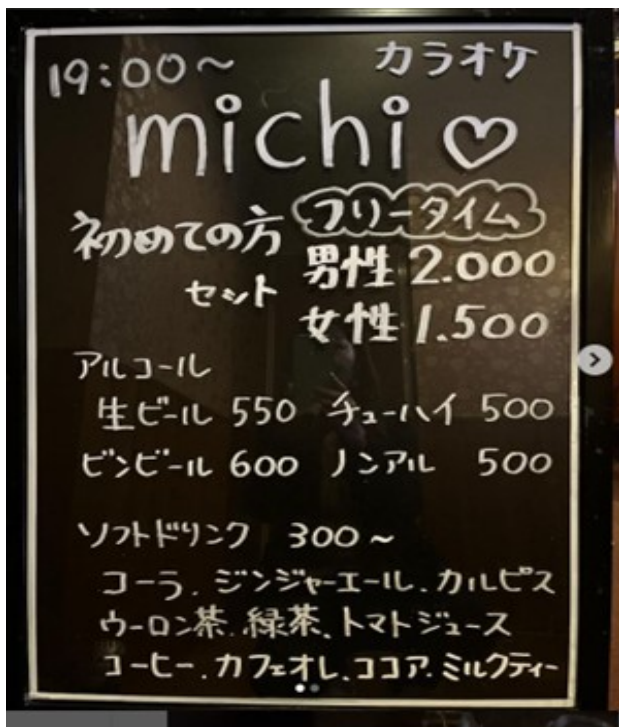 19:00～ カラオケ
michi♡
初めての方 フリータイム
セット 男性 2.000
女性 1.500
アルコール
生ビール 550 チューハイ 500
ビンビール 600 ノンアル 500
ソフトドリンク 300～
コーラ、ジンジャーエール、カルピス
ウーロン茶、緑茶、トマトジュース
コーヒー、カフェオレ、ココア、ミルクティー